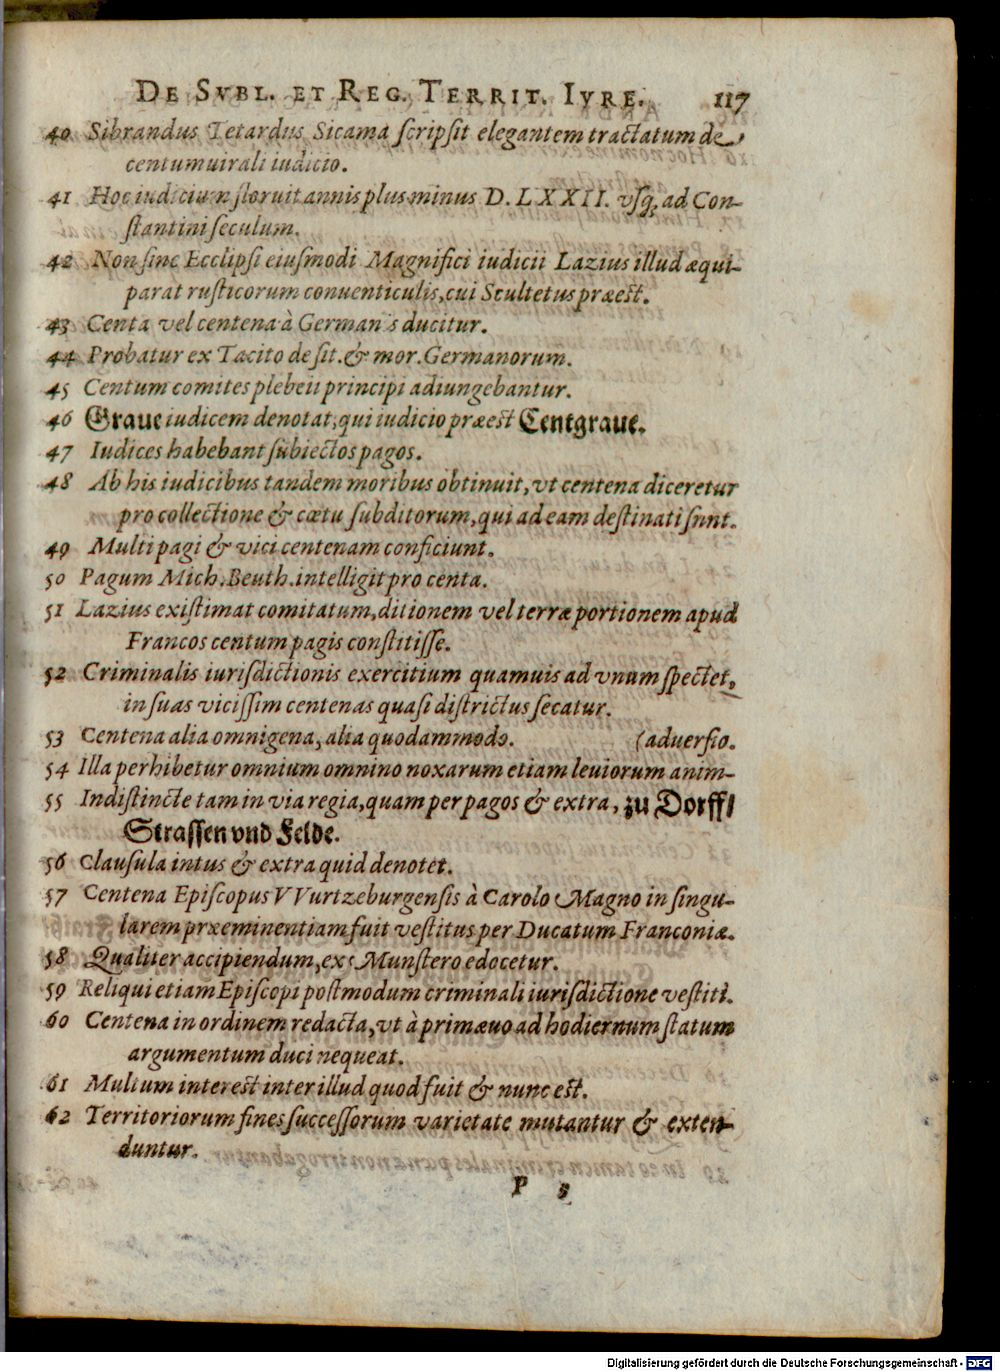 DE SVBL. ET REG. TERRIT. IVRE. 117
40 Sibrandus Tetardus Sicama ſcripſit elegantem tractatum de
centumuirali iudicio.
41 Hoc iudicium floruit annis plus minus D. LXXII. vſq; ad Con-
ſtantini ſeculum.
42 Non ſine Ecclipſi eiuſmodi Magnifici iudicii Lazius illud æqui-
parat ruſticorum conuenticulis, cui Scultetus præeſt.
43 Centa vel centena à Germanis ducitur.
44 Probatur ex Tacito de ſit. & mor. Germanorum.
45 Centum comites plebeii principi adiungebantur.
46 Graue iudicem denotat, qui iudicio præeſt Centgraue.
47 Iudices habebant ſubiectos pagos.
48 Ab his iudicibus tandem moribus obtinuit, vt centena diceretur
pro collectione & cœtu ſubditorum, qui ad eam deſtinati ſunt.
49 Multi pagi & vici centenam conficiunt.
50 Pagum Mich. Beuth. intelligit pro centa.
51 Lazius exiſtimat comitatum, ditionem vel terræ portionem apud
Francos centum pagis conſtitiſſe.
52 Criminalis iurisdictionis exercitium quamuis ad vnum ſpectet,
in ſuas viciſſim centenas quaſi diſtrictus ſecatur.
53 Centena alia omnigena, alia quodammodo. (aduerſio.
54 Illa perhibetur omnium omnino noxarum etiam leuiorum anim-
55 Indiſtincte tam in via regia, quam per pagos & extra, zu Dorff/
Straſſen vnd Felde.
56 Clauſula intus & extra quid denotet.
57 Centena Epiſcopus VVurtzeburgenſis à Carolo Magno in ſingu-
larem præeminentiam fuit veſtitus per Ducatum Franconiæ.
58 Qualiter accipiendum, ex Munſtero edocetur.
59 Reliqui etiam Epiſcopi poſtmodum criminali iurisdictione veſtiti.
60 Centena in ordinem redacta, vt à primæuo ad hodiernum ſtatum
argumentum duci nequeat.
61 Multum intereſt inter illud quod fuit & nunc eſt.
62 Territoriorum fines ſucceſſorum varietate mutantur & exten-
duntur.
P 5
Digitalisierung gefördert durch die Deutsche Forschungsgemeinschaft - DFG